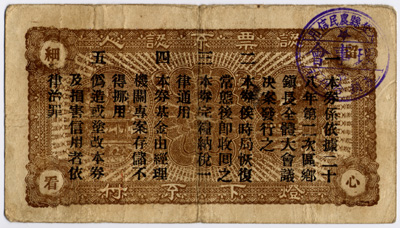 認票不認人
細
心
看
一 本券係依據二十
八年第二次區鄉
鎮長全體大會議
決案發行之
二 本券俟時局恢復
常態後即收回之
三 本券完糧納稅一
律通用
四 本券基金由經理
機關專案存儲不
得挪用
五 偽造或塗改本券
及損害信用者依
律治罪
燈下不付
縣農民
會